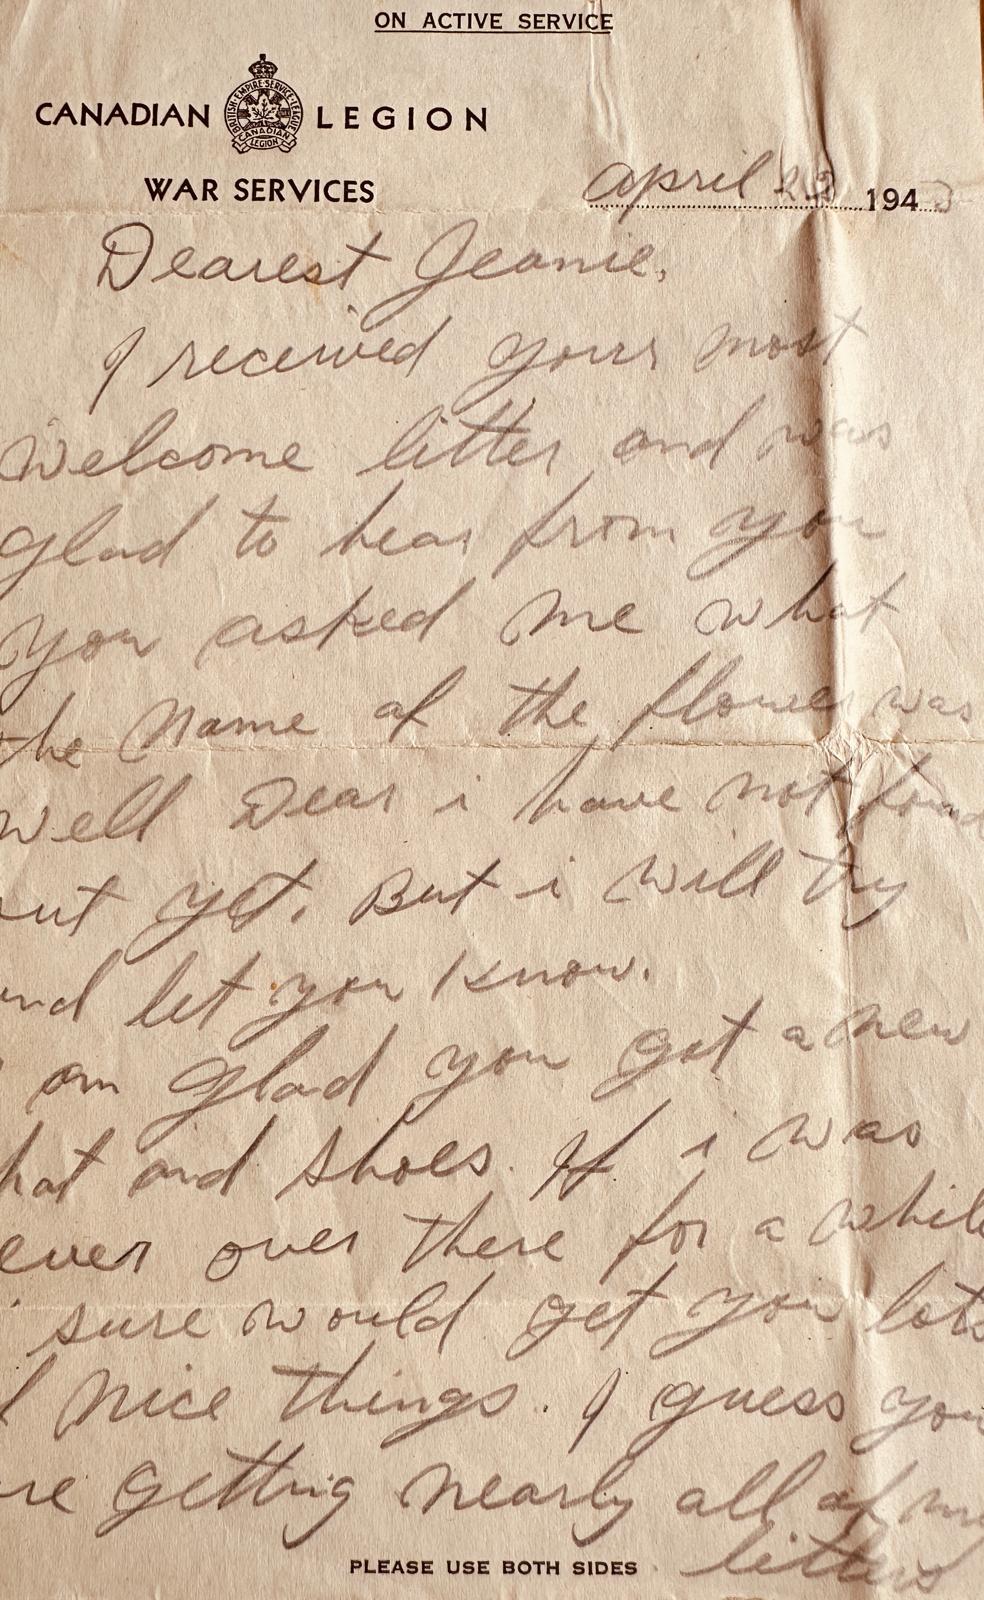 ON ACTIVE SERVICE
CANADIAN LEGION
BRITISH EMPIRE SERVICE LEAGUE
CANADIAN
LEGION
WAR SERVICES
april 23 194
Dearest Jeanie,
I received yours most
welcome litter and was
glad to hear from you
you asked me what
the name of the flower was
well Dear i have not found
out yet. But i will try
and let you know.
am glad you got a new
hat and shoes. If i was
ever over there for a while
i sure would get you lots
of nice things. I guess you
are getting nearly all of my
litters
PLEASE USE BOTH SIDES